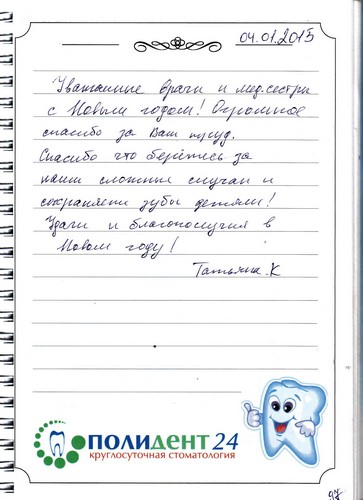 04.01.2015
Уважаемые врачи и мед.сестры
с Новым годом! Огромное
спасибо за Ваш труд.
Спасибо что берётесь за
наши сложные случаи и
сохраняете зубы детями!
Удачи и благополучия в
Новом году!
Татьяна К
ПОЛИДЕНТ 24
круглосуточная стоматология